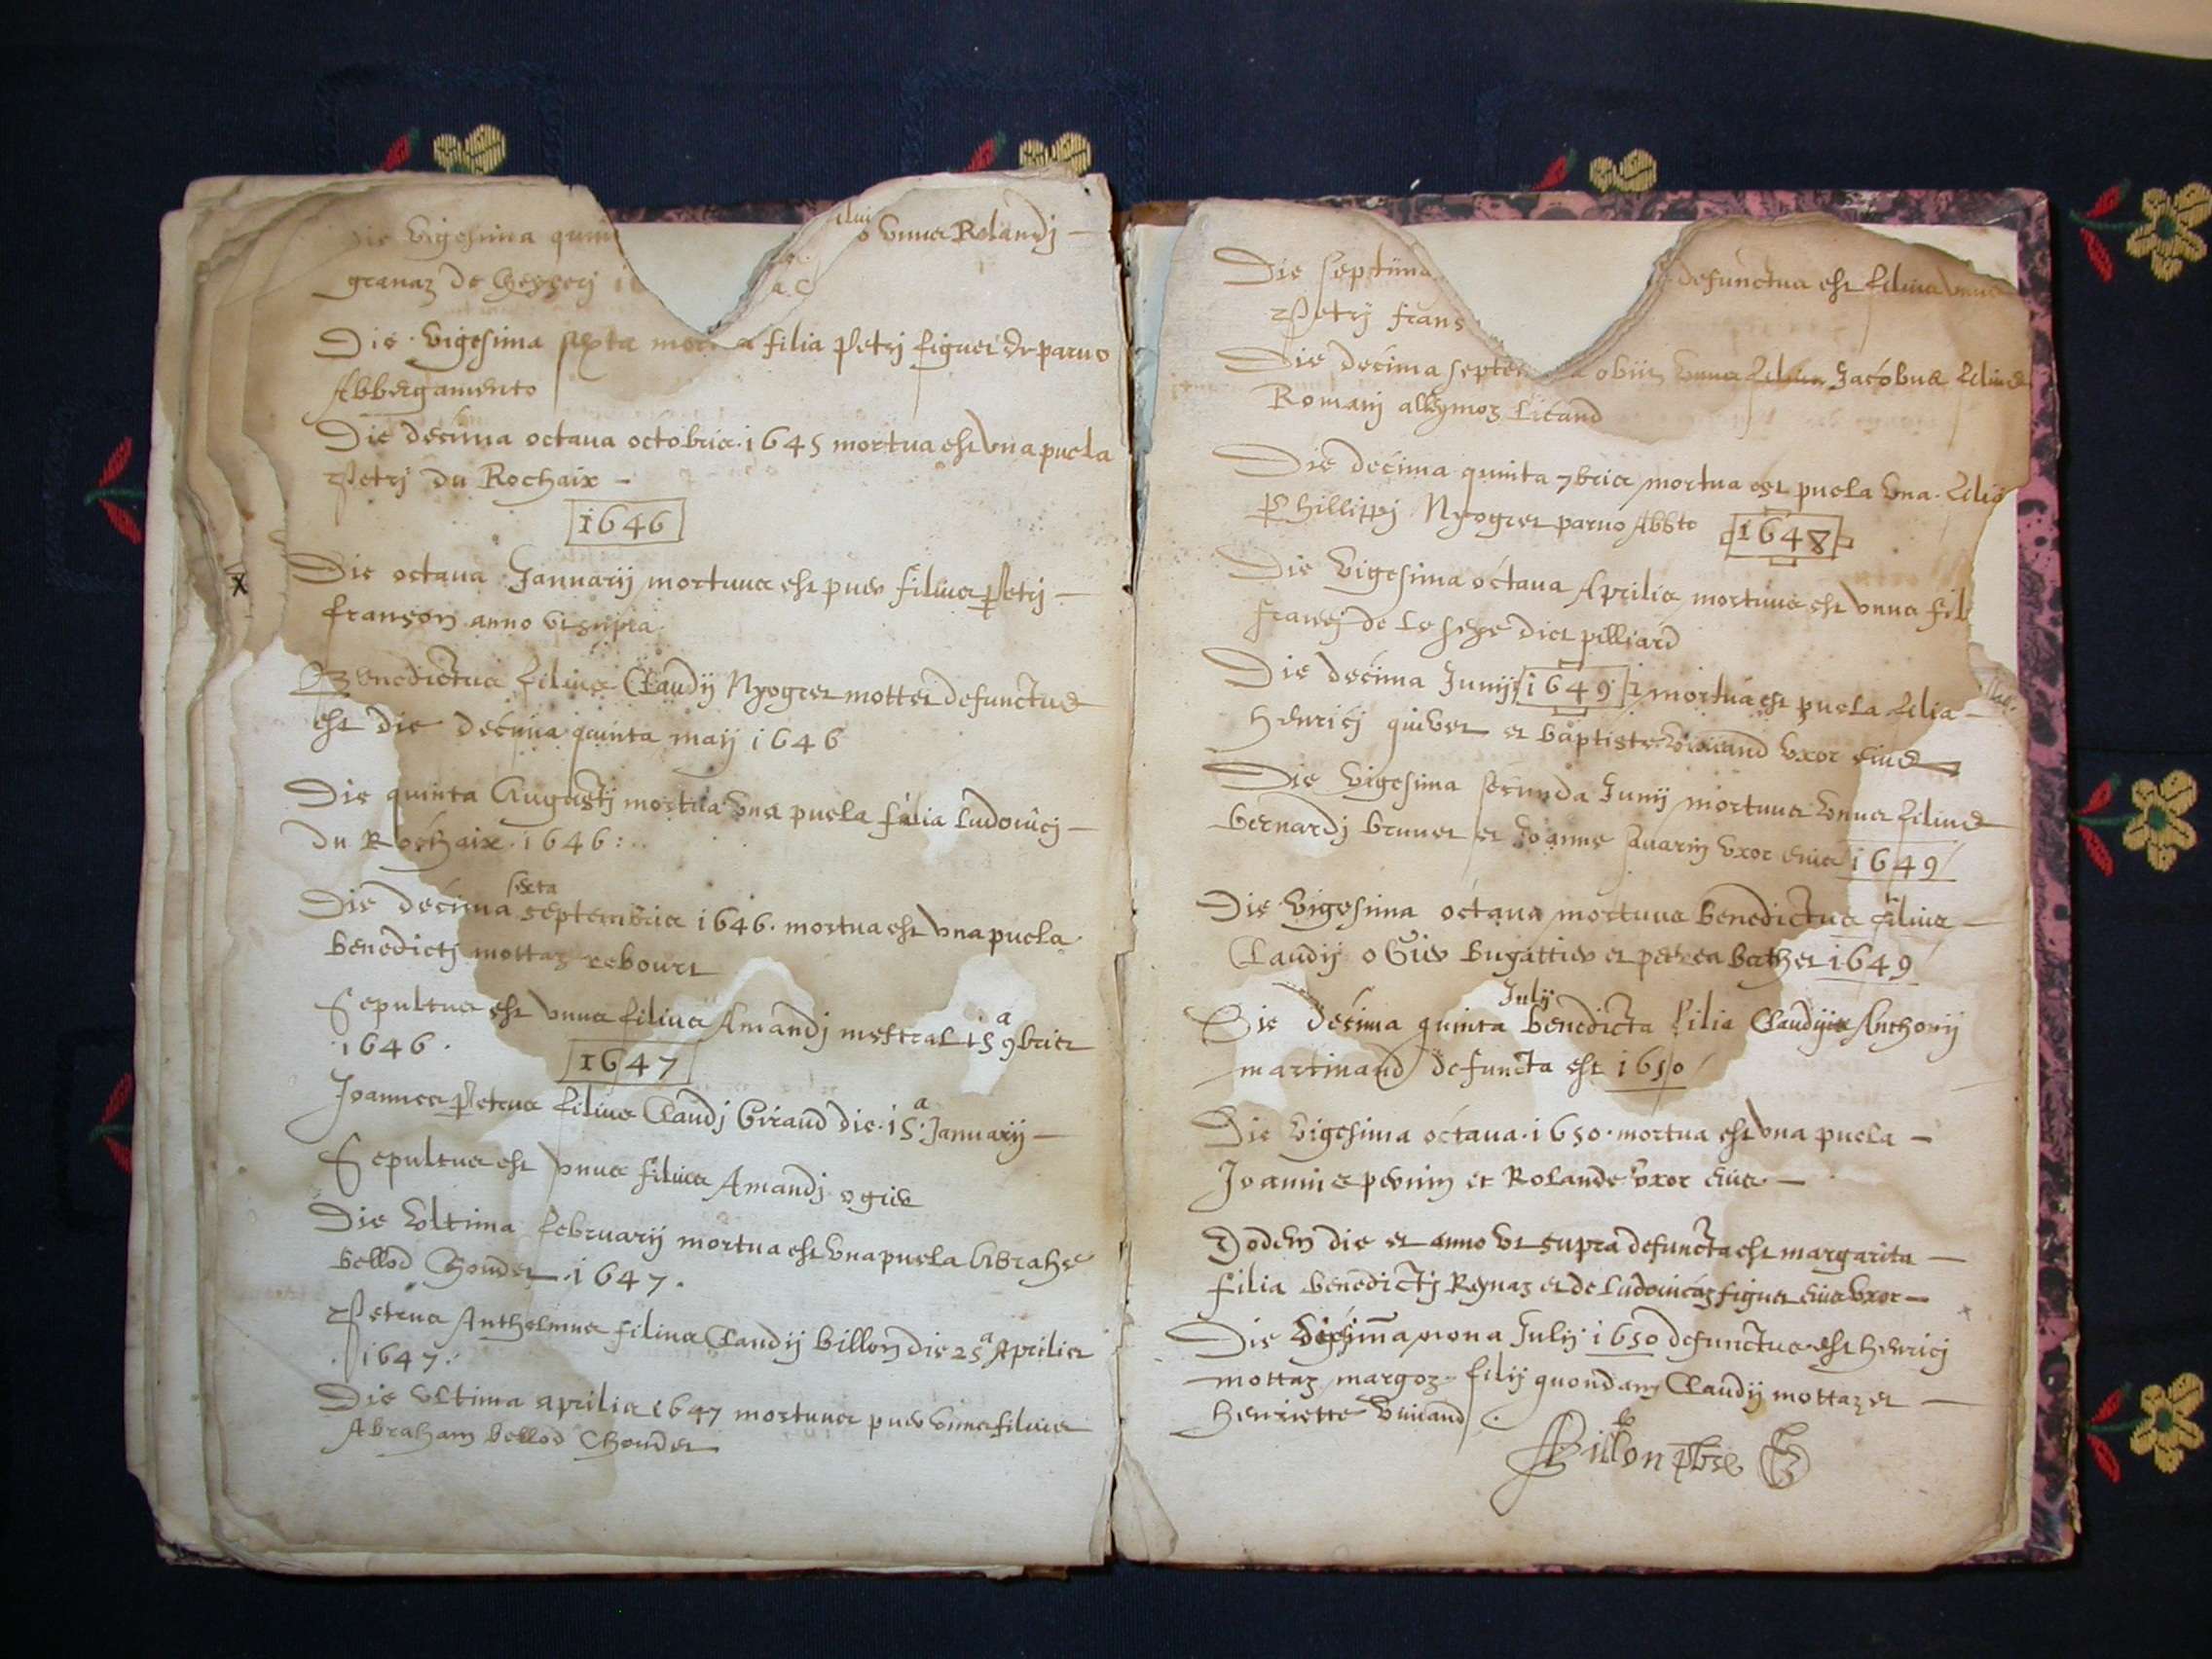 Die vigesima
unus Rolandj
granaz de
Die vigesima sexta filia Petrj figuet de paruo
Abbergamento
Die decima octaua octobris 1645 mortua est vna puela
Petrj du Rochaix
1646
Die octaua Januarij mortuus est puer filius Petrj
franson anno vt supra
Benedictus filius Claudij Nyogret mottet defunctus
est die decima quinta maij 1646
Die quinta Augustj mortua vna puela filia Ludouicj
du Rochaix 1646
sexta
Die decima septembris 1646. mortua est vna puela
benedictj mottaz rebourt
Sepultus est vnus filius Amandj mestral 15a 9bris
1646.
1647
Joannes Petrus filius Claudj Giraud die 15a Januarij
Sepultus est vnus filius Amandj ogier
Die vltima februarij mortua est vna puela Abrahe
bellod Chouder 1647.
Petrus Anthelmus filius Claudij billon die 25a Aprilis
1647.
Die vltima aprilis 1647 mortuus puer vnus filius
Abraham bellod Chouder
Die septima defunctus est filius vnus
Petrj frans
Die decima obiit Jacobus filius
Romanj
Die decima quinta 7bris mortua est puela vna filia
Phillippj Nyogret paruo Abbto 1648
Die vigesima octaua Aprilis mortuus est vnus fil
de dict pilliard
Die decima Junij 1649 mortua est puela filia
henricj quiuet et baptiste viuiand vxor eius
Die vigesima secunda Junij mortuus vnus filius
bernardj brunet et Joanne Auarin vxor eius 1649
Die vigesima octaua mortuus benedictus filius
Claudij ogier bugattier et berthet 1649
July
Die decima quinta benedicta filia Claudij Anthonij
martinand defuncta est 1650
Die vigesima octaua 1650 mortua est vna puela
Joannis perrin et Rolande vxor eius
Eodem die et anno vt supra defuncta est margarita
filia benedictj Reynaz et de Ludouicaz figuet eius vxor
Die nona July 1650 defunctus est henricj
mottaz margoz filij quondam Claudij mottaz et
henriette viuiand
Billon pbre